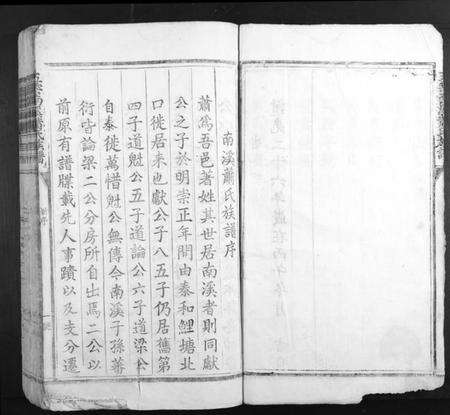 南溪蕭氏族譜序
蕭爲吾邑著姓其世居南溪者則同獻
公之子於明崇正年間由泰和鯉塘北
口徙居來也獻公子八五子仍居舊第
四子道魁公五子道論公六子道梁公
自泰徙萬惜魁公無傳今南溪子孫蕃
衍皆論梁二公分房所自出焉二公以
前原有譜牒載先人事蹟以及支分遷